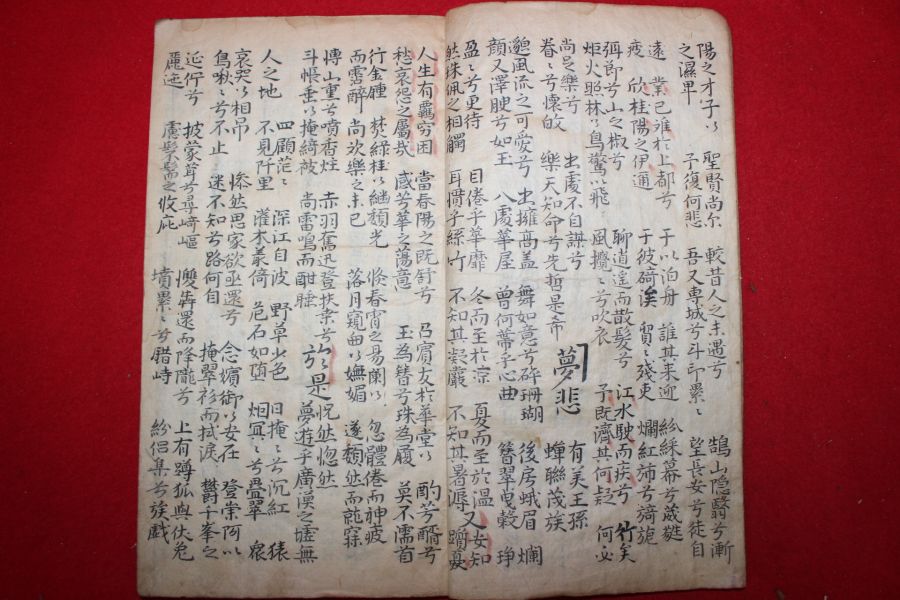 陽之才子以 聖賢尚尔 較昔人之未遇兮 鵠山隱翳兮漸
之濕卑 子復何悲 吾又專城兮斗印累ヽ 望長安兮徒自
遠 業已難於上都兮 于以泊舟 誰其來迎 紛綵幕兮葳蕤
疲 欣桂陽之伊邇 于彼碕涘 貿ヽ殘吏 爛紅旆兮旖旎
弭節兮山之椒兮 聊逍遥而散髮兮 江水駛而疾兮 竹矣
炬火照林以鳥驚以飛 風攪ヽ兮吹衣 予既濟其何疑 何必
尚足樂兮 出處不自謀兮 夢悲 有美王孫
眷ヽ兮懷故 樂天知命兮先哲是希 蟬聯茂族
邈風流之可愛兮 出擁高盖 舞如意兮碎珊瑚 後房蛾眉 爛
顔又澤腴兮如玉 八處華屋 曾何蔕乎心曲 簪翠曳縠 琤
盈ヽ兮更待 目倦乎華靡 冬而至於寒 夏而至於溫 又安知
然珠佩之相觸 耳慣乎絲竹 不知其凝嚴 不知其暑溽 憂
人生有羈穷困 當春陽之既舒兮 呂賓友於華堂以 酌芳醑兮
愁哀怨之屬哉 感芳華之蕩意 玉為簪兮珠為履 莫不濡首
行金鍾 焚綠桂以継頹光 倏春宵之易闌以 忽體倦而神疲
而霑醉 尚次樂之未已 落月窺曲以嫵媚 遂頹然而就寐
博山重兮噴香炷 赤羽奮迅登扶桒兮 於是 怳然惚然
斗帳垂以掩綺被 尚雷鳴而酣睡 夢遊乎廣漠之墟無
人之地 四顧茫ヽ 深江白波 野草少色 日掩ヽ兮沉紅 猿
不見阡里 灌木叢倚 危石如堕 烟冥ヽ兮疊翠 猱
哀哭以相吊 惨然思家欲亟還兮 念以安在 登崇阿以
鳥啾ヽ兮不止 迷不知兮路何自 掩翠衫而拭淚 欝千峯之
延佇兮 披蒙茸兮尋崎嶇 還而降隴兮 上有蹲狐與伏兔
麗迤 髣髴之攸庇 墳累ヽ兮錯峙 紛侶集兮族戱